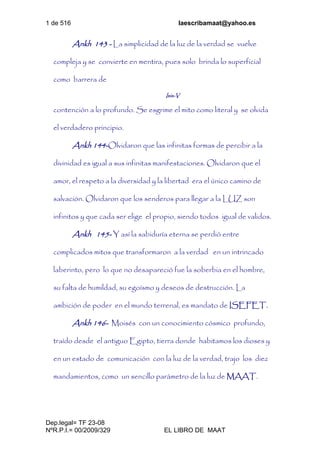 1 de 516 laescribamaat@yahoo.es
Ankh 143 - La simplicidad de la luz de la verdad se vuelve
compleja y se convierte en mentira, pues solo brinda lo superficial
como barrera de
Isis-V
contención a lo profundo. Se esgrime el mito como literal y se olvida
el verdadero principio.
Ankh 144-Olvidaron que las infinitas formas de percibir a la
divinidad es igual a sus infinitas manifestaciones. Olvidaron que el
amor, el respeto a la diversidad y la libertad era el único camino de
salvación. Olvidaron que los senderos para llegar a la LUZ son
infinitos y que cada ser elige el propio, siendo todos igual de validos.
Ankh 145- Y así la sabiduría eterna se perdió entre
complicados mitos que transformaron a la verdad en un intrincado
laberinto, pero lo que no desapareció fue la soberbia en el hombre,
su falta de humildad, su egoísmo y deseos de destrucción. La
ambición de poder en el mundo terrenal, es mandato de ISEFET.
Ankh 146- Moisés con un conocimiento cósmico profundo,
traído desde el antiguo Egipto, tierra donde habitamos los dioses y
en un estado de comunicación con la luz de la verdad, trajo los diez
mandamientos, como un sencillo parámetro de la luz de MAAT.
Dep.legal= TF 23-08
NºR.P.I.= 00/2009/329 EL LIBRO DE MAAT